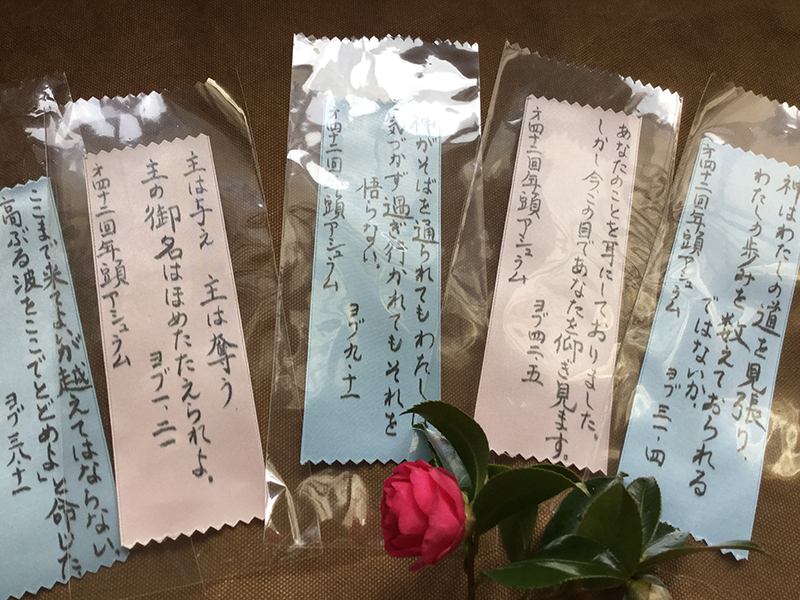 神はわたしの道を見張り
わたしの歩みを数えておられる
ではないか。 ヨブ 三一・四
才四十二回年頭アシュラム
あなたのことを耳にしておりました。
しかし今この目であなたを仰ぎ見ます。
ヨブ 四二・五
才四十二回年頭アシュラム
神がそばを通られてもわたし
気づかず過ぎ行かれてもそれを
悟らない。 ヨブ 九・十一
才四十二回年頭アシュラム
主は与え 主は奪う
主の御名はほめたたえられよ。
ヨブ 一・二一
才四十二回年頭アシュラム
ここまで来てよいが越えてはならない。
高ぶる波をここでとどめよ」と命じた。
ヨブ 三八・十一